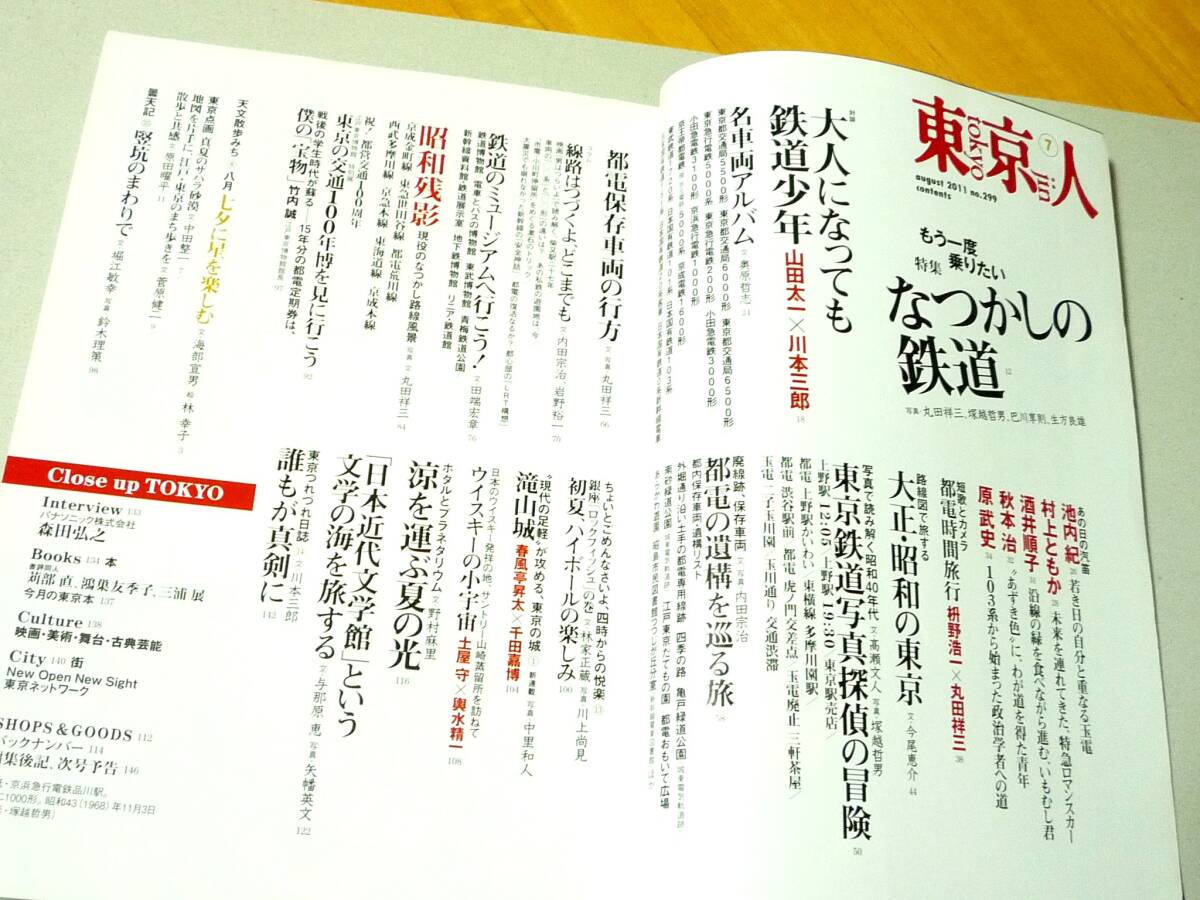 東京人
tokyo
jin
7
august 2011 no.299
contents
もう一度
乗りたい
特集
なつかしの
鉄道
12
写真・丸田祥三、塚越哲男、巴川享則、生方良雄
対談
大人になっても
鉄道少年
山田太一×川本三郎
18
名車両アルバム
文・奥原哲志
24
東京都交通局5500形 東京都交通局6000形 東京都交通局6500形
東京急行電鉄5000系 東京急行電鉄200形 小田急電鉄3000形
小田急電鉄3100形 京浜急行電鉄1000形
都電保存車両の行方
文・写真・丸田祥三
66
コラム
線路はつづくよ、どこまでも
文・内田宗治、岩野裕一
70
鉄道のミュージアムへ行こう!
文・田端宏章
76
鉄道博物館 電車とバスの博物館 東武博物館 青梅鉄道公園
新幹線資料館 鉄道展示室 地下鉄博物館 リニア・鉄道館
昭和残影
現役のなつかし路線風景
写真・文・丸田祥三
84
京成金町線 東急世田谷線 都電荒川線
西武多摩川線 京急本線 東海道線 京成本線
祝!都営交通100周年
東京の交通100年博を見に行こう
92
戦後の学生時代が蘇る——15年分の都電定期券は、
僕の「宝物」
竹内 誠
97
天文散歩みち
八月 七夕に星を楽しむ
文・海部宣男 絵・林 幸子
3
東京点画
真夏のサハラ砂漠
文・中田整一
7
地図を片手に、江戸・東京のまち歩きを
文・菅原健二
9
散歩と共感
文・原田曜平
11
曇天記
竪坑のまわりで
文・堀江敏幸 写真・鈴木理策
98
あの日の汽笛
池内 紀
26
若き日の自分と重なる玉電
村上ともか
28
未来を連れてきた、特急ロマンスカー
酒井順子
30
沿線の緑を食べながら進む、いもむし君
秋本 治
32
“あずき色”に、わが道を得た青年
原 武史
34
103系から始まった政治学者への道
短歌とカメラ
都電時間旅行
枡野浩一×丸田祥三
38
路線図で旅する
大正・昭和の東京
文・今尾恵介
44
写真で読み解く昭和40年代
文・高瀬文人 写真・塚越哲男
東京鉄道写真探偵の冒険
50
上野駅12:05/上野駅19:30/東京駅売店/
都電 上野駅かいわい/東横線 多摩川園駅/
都電 渋谷駅前/都電 虎ノ門交差点/玉電廃止 三軒茶屋/
玉電 二子玉川園/玉川通り 交通渋滞
廃線跡、保存車両
文・写真・内田宗治
都電の遺構を巡る旅
58
都内保存車両、遺構リスト
外堀通り沿い土手の都電専用線跡 四季の路 亀戸緑道公園
南砂緑道公園 江戸東京たてもの園 都電おもいで広場
ちょいとごめんなさいよ、四時からの悦楽
銀座「ロックフィッシュ」の巻
文・林家正蔵 写真・川上尚見
初夏、ハイボールの楽しみ
100
“現代の足軽”が攻める、東京の城
① 新連載
写真・中里和人
滝山城
春風亭昇太×千田嘉博
104
日本のウイスキー発祥の地、サントリー山崎蒸留所を訪ねて
ウイスキーの小宇宙
土屋 守×輿水精一
108
ホタルとプラネタリウム
文・野村麻里
涼を運ぶ夏の光
116
「日本近代文学館」という
文学の海を旅する
文・与那原 恵 写真・矢幡英文
122
東京つれづれ日誌
文・川本三郎
誰もが真剣に
142
Close up TOKYO
Interview 133
パナソニック株式会社
森田弘之
Books 134 本
書評同人
苅部 直、鴻巣友季子、三浦 展
今月の東京本 137
Culture 138
映画・美術・舞台・古典芸能
City 140 街
New Open New Sight
東京ネットワーク
SHOPS & GOODS 112
バックナンバー 114
編集後記、次号予告 146
京浜急行電鉄品川駅。
1000形。昭和43(1968)年11月3日
塚越哲男]